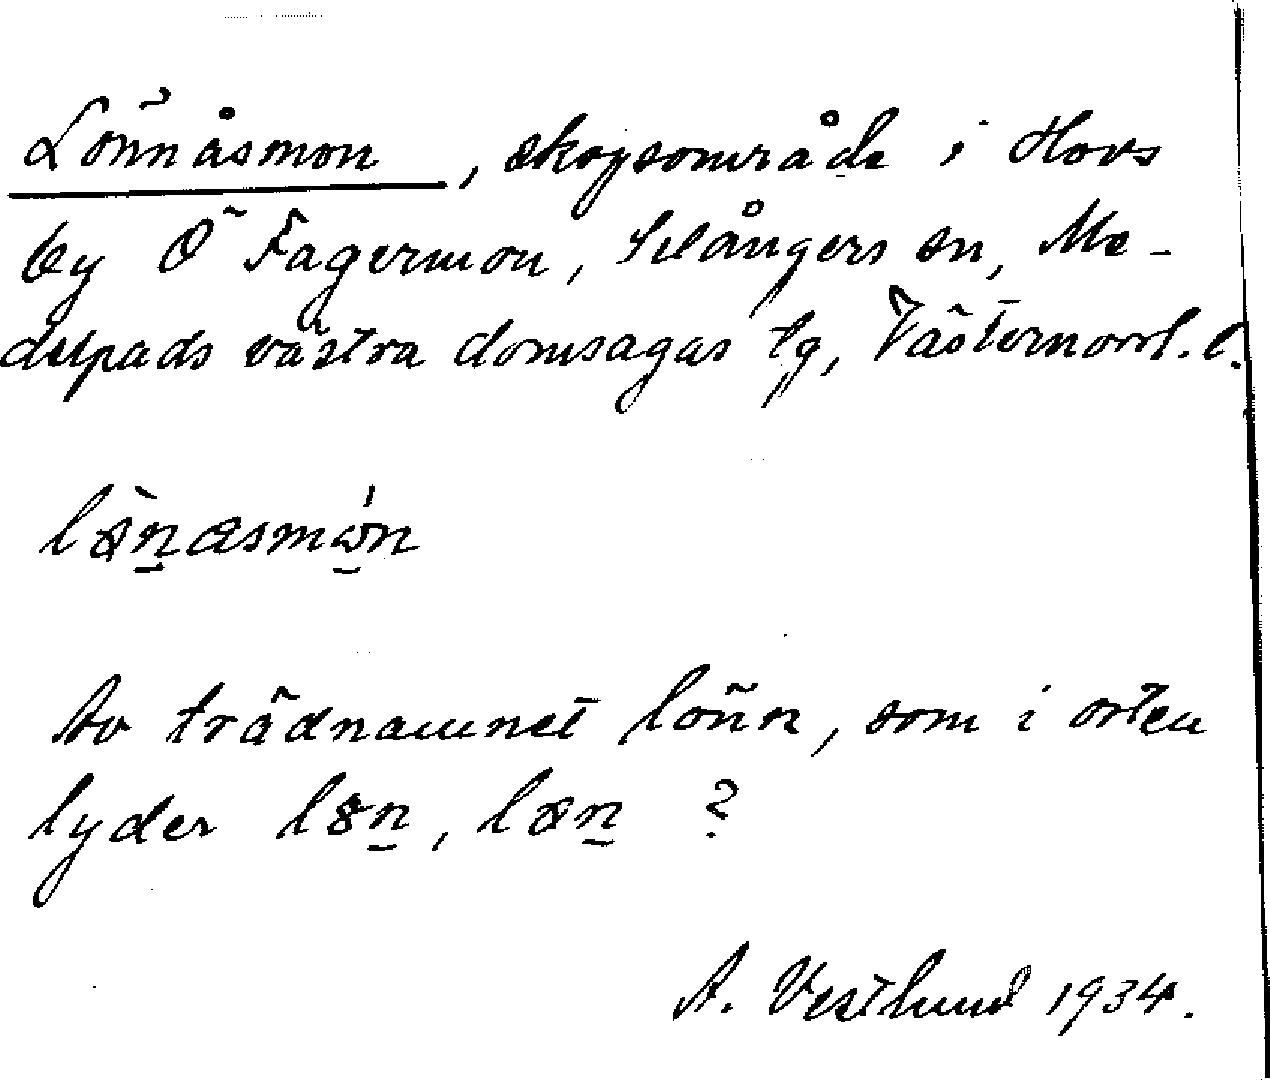 Lönnåsmon, skogsområde i Hovs
by o Fagermon, Selångers sn, Me-
delpads västra domsagas tg, Västernorrl. l.
lönasmon
Av trädnamnet lönn, som i orten
lyder løn, lön ?
A. Vestlund 1934.